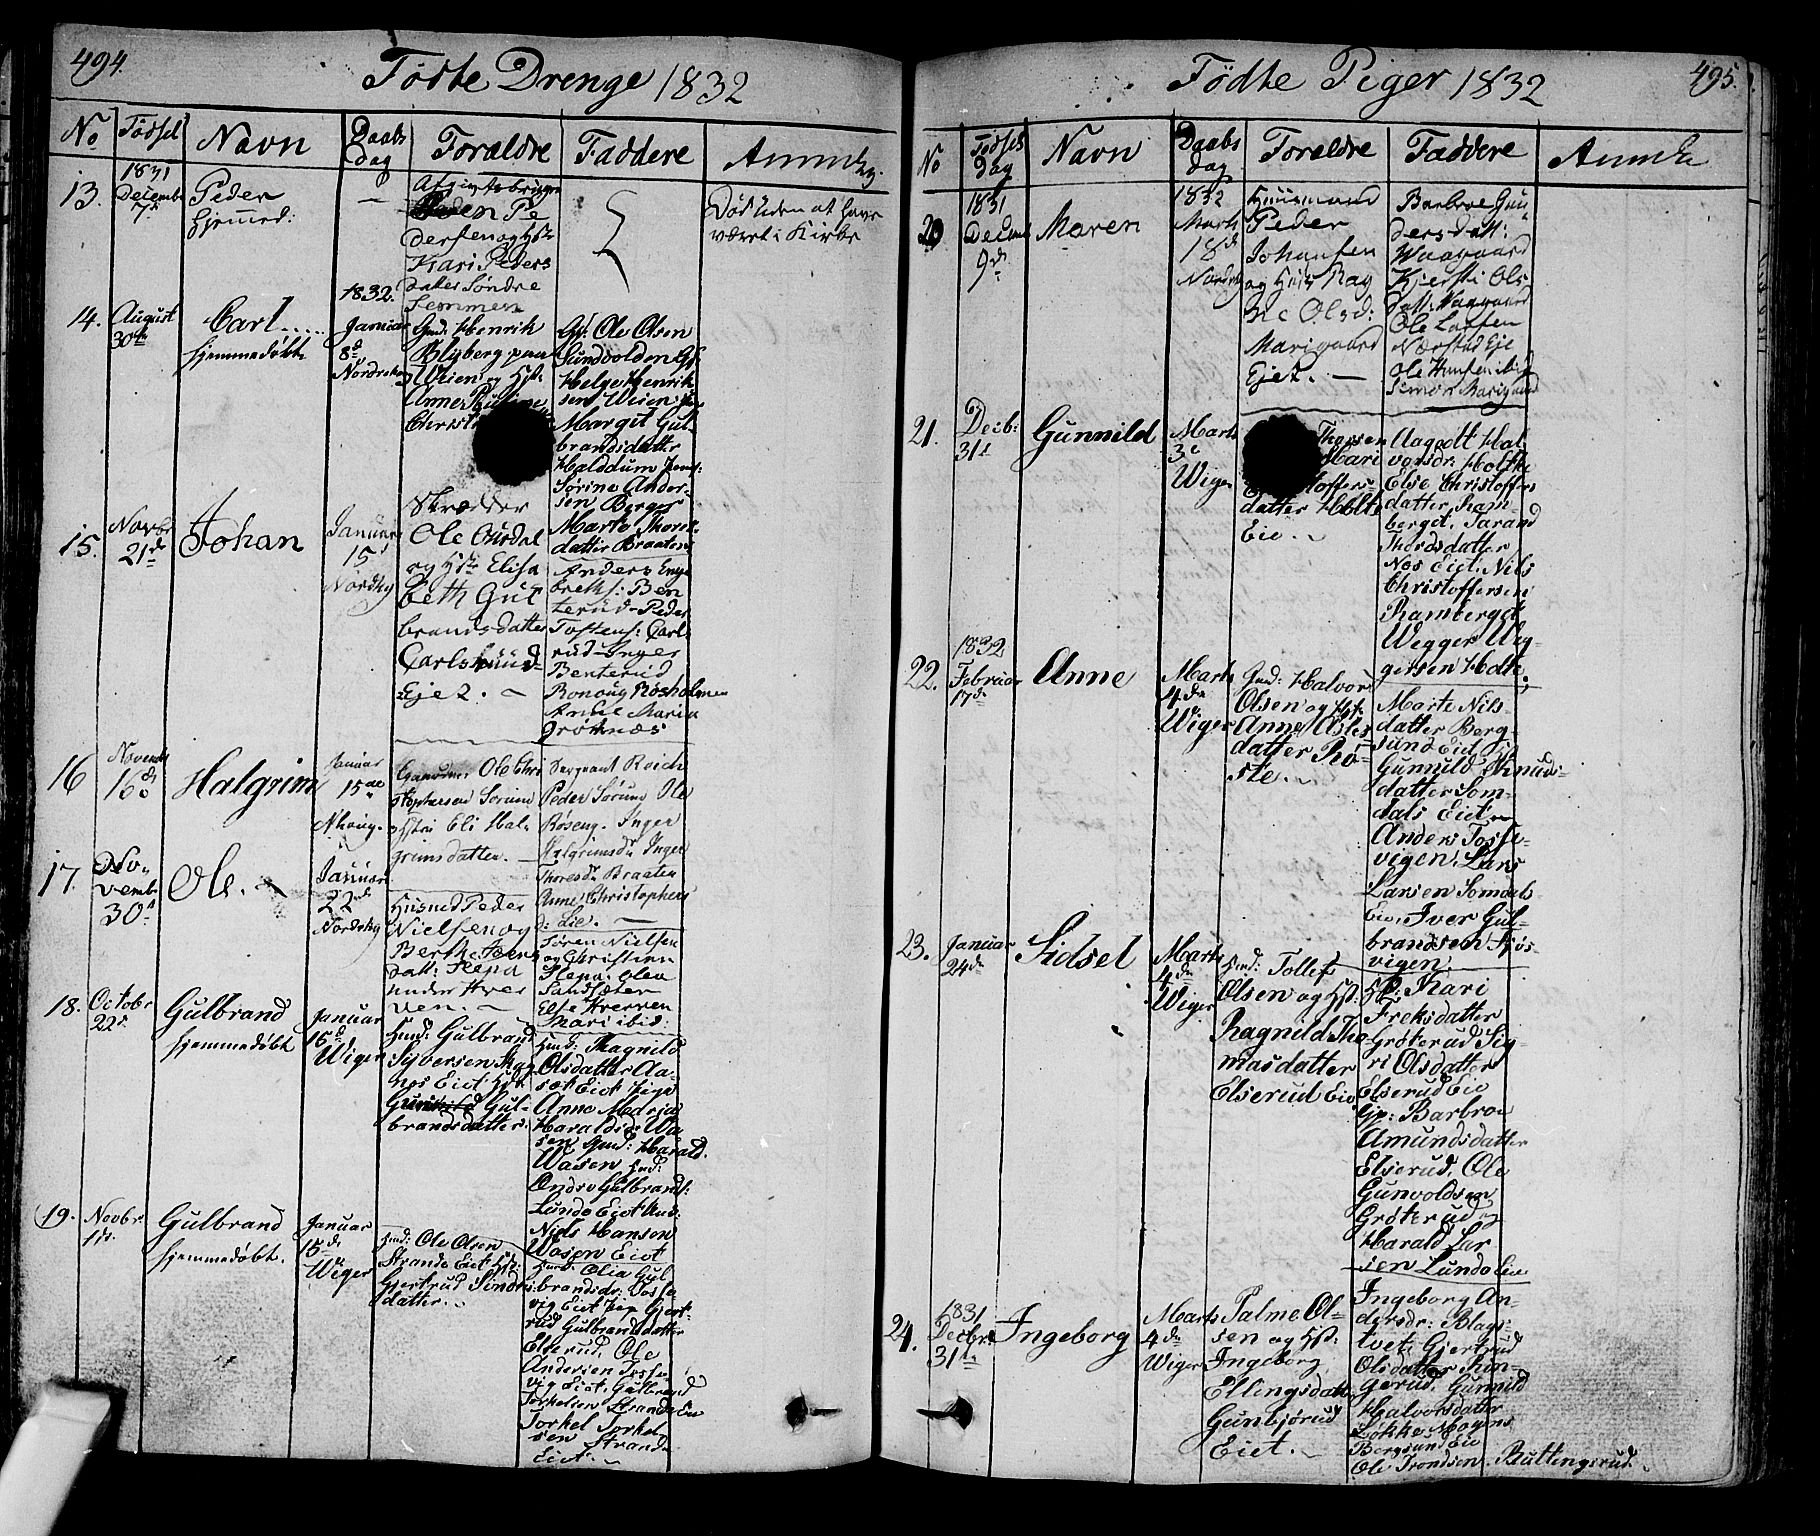 494.
Fødte Drenge 1832
No
Fødsel
Navn
Daabs
dag
Forældre
Faddere
Anmærkg.
13.
1831
Decemb
7d
Peder
hjemmed:
—
Peder Pe
dersen og Hst
Kari Peders
dater Søndre
Semmen
Død uden at have
været i Kirke
14.
August
30te
Carl
hjemmedøbt
1832.
Januar
8d
Nordrehoug
Gmd: Henrik
Blyberg paa
Weien og Hst:
Anne
Christ
Gp: Ole Olsen
Sundvolden Gp
Helge Henrik
sen Weien
Margit Gul
brandsdatter
Halddum
Sørine Ander-
sen Berger
Marte Thores
datter Braaten
15.
Novbr
21d
Johan
Januar
15d
Nordhg
Skrædder
Ole Aasdal
og Hst: Elisa
beth Gul
brandsdatter
Carlshuud
Eje 2. —
Anders Enge
breths: Ben
terud - Peder
Tostens: Carls
rud - Inger
Benterud
Ronoug Røsholmen
Anne Maria
Grøtnæs
16
Novemb
16d
Halgrim
Januar
15de
Nhoug.
Gaardmd Ole Chri
stophersen Sørum
Hstr: Eli Hal-
grimsdatter. —
Sergeant Roich
Peder Sørum Ole
Røseng. Inger
Halgrimsd. Inger
Thoresd. Braaten
Anne Christophers
d: Lie. —
17.
No-
vemb
30d
Ole.
Januar
22nd
Nordrhg
Husmd Peder
Nielsen og
Berthe Jens
datt: Stepa
under Hver
ven. —
Søren Nielsen
og Christien
Stepa: Olea
Sandsæter
Else Hverven
Mari ibid:
18.
Octobr
22d.
Gulbrand
hjemmedøbt
Januar
15d
Wiger
Hmd: Gulbrand
Syversen
næs Eiet Hst:
Gunhild Gul-
brandsdatter.
Hmd: Ragnild
Olsdatter Aa-
sæt Eiet Pige
Anne Medrja
Haraldsd: Wa-
sen Gmd: Harald
Wasen Hmd:
Andrs Gulbrands:
Lunde Eiet
Niels Hansen
Wasen Eiet
19.
Novbr
11d.
Gulbrand
hjemmedøbt.
Januar
15d
Wiger
Hmd: Ole Olsen
Strande Eiet Hst:
Gjertrud Simens
datter.
Hmd: Olia Gul
brandsdr: Tosse-
vig Eiet Pige Gjert-
rud Gulbrandsdatter
Elserud. Ole
Andersen Tosse-
vig Eiet. Gulbrand
Torkelsen Strande Eie
Torkel Torkel-
sen Strande
Eiet.
495.
Fødte Piger 1832
No
Fødsels
Dag
Navn
Daabs
dag
Forældre
Faddere
Anmærk
20
1831
Decemb
9d
Maren
1832
Marts
18d
Nordrhg
Huusmand
Peder
Johansen
og Hst: Rag
ne Olsd:
Marigaard
Eje 2. —
Barbroe Gun
dersdatt:
Waagaard
Kjersti Ols
datt: Vaagaard
Ole Larsen
Næstad Eje
Ole Hansen ibid
Simon Marigaard
21.
Decb:
31d
Gunnild
Marts
3d
Wiger
Thorsen
Mari
stoffers-
datter Holte
Eie.
Aagodt Hal-
vorsdr: Holthe
Else Christoffers
datter Ram-
berget. Tarand
Thordsdatter
Næs Eiet. Nils
Christoffersen
Ramberget
Wegger Weg-
gersen Holte.
22.
1832
Februar
17d
Anne
Marts
4de
Wiger
Gmd: Halvor
Olsen og Hst:
Anne Asles
datter Rø-
ste.
Marte Nils-
datter Berg-
sund Eiet
Gunnild Knuds-
datter Som-
dals Eiet
Anders Tosse-
vigen. Lars
Larsen Somdals
Eie. Iver Gul-
brandsen Sjøs-
vigen.
23.
Januar
24de
Sidsel
Marts
4de
Wiger
Hmd: Tollef
Olsen og Hst:
Ragnild Tho-
masdatter
Elserud Eie
Kari
Freksdatter
Grøterud Sig-
ri Olsdatter
Elserud Eie
Gp: Barbroe
Amundsdatter
Elserud. Ole
Gunvoldsen
Grøterud og
Harald Lar-
sen Lunde Eie
24.
1831
Decbr
31te
Ingeborg
Marts
4de
Wiger
Palme Ol-
sen og Hst:
Ingeborg
Ellingsdatt
Gunbjørud
Eiet. —
Ingeborg An-
dersdr: Blags-
tvet. Gjertrud
Olsdatter Rin-
gerud. Gunnild
Halvorsdatter
Løkke. Mogens
Bergsund Eie
Ole Trondsen. Ruttingsrud.